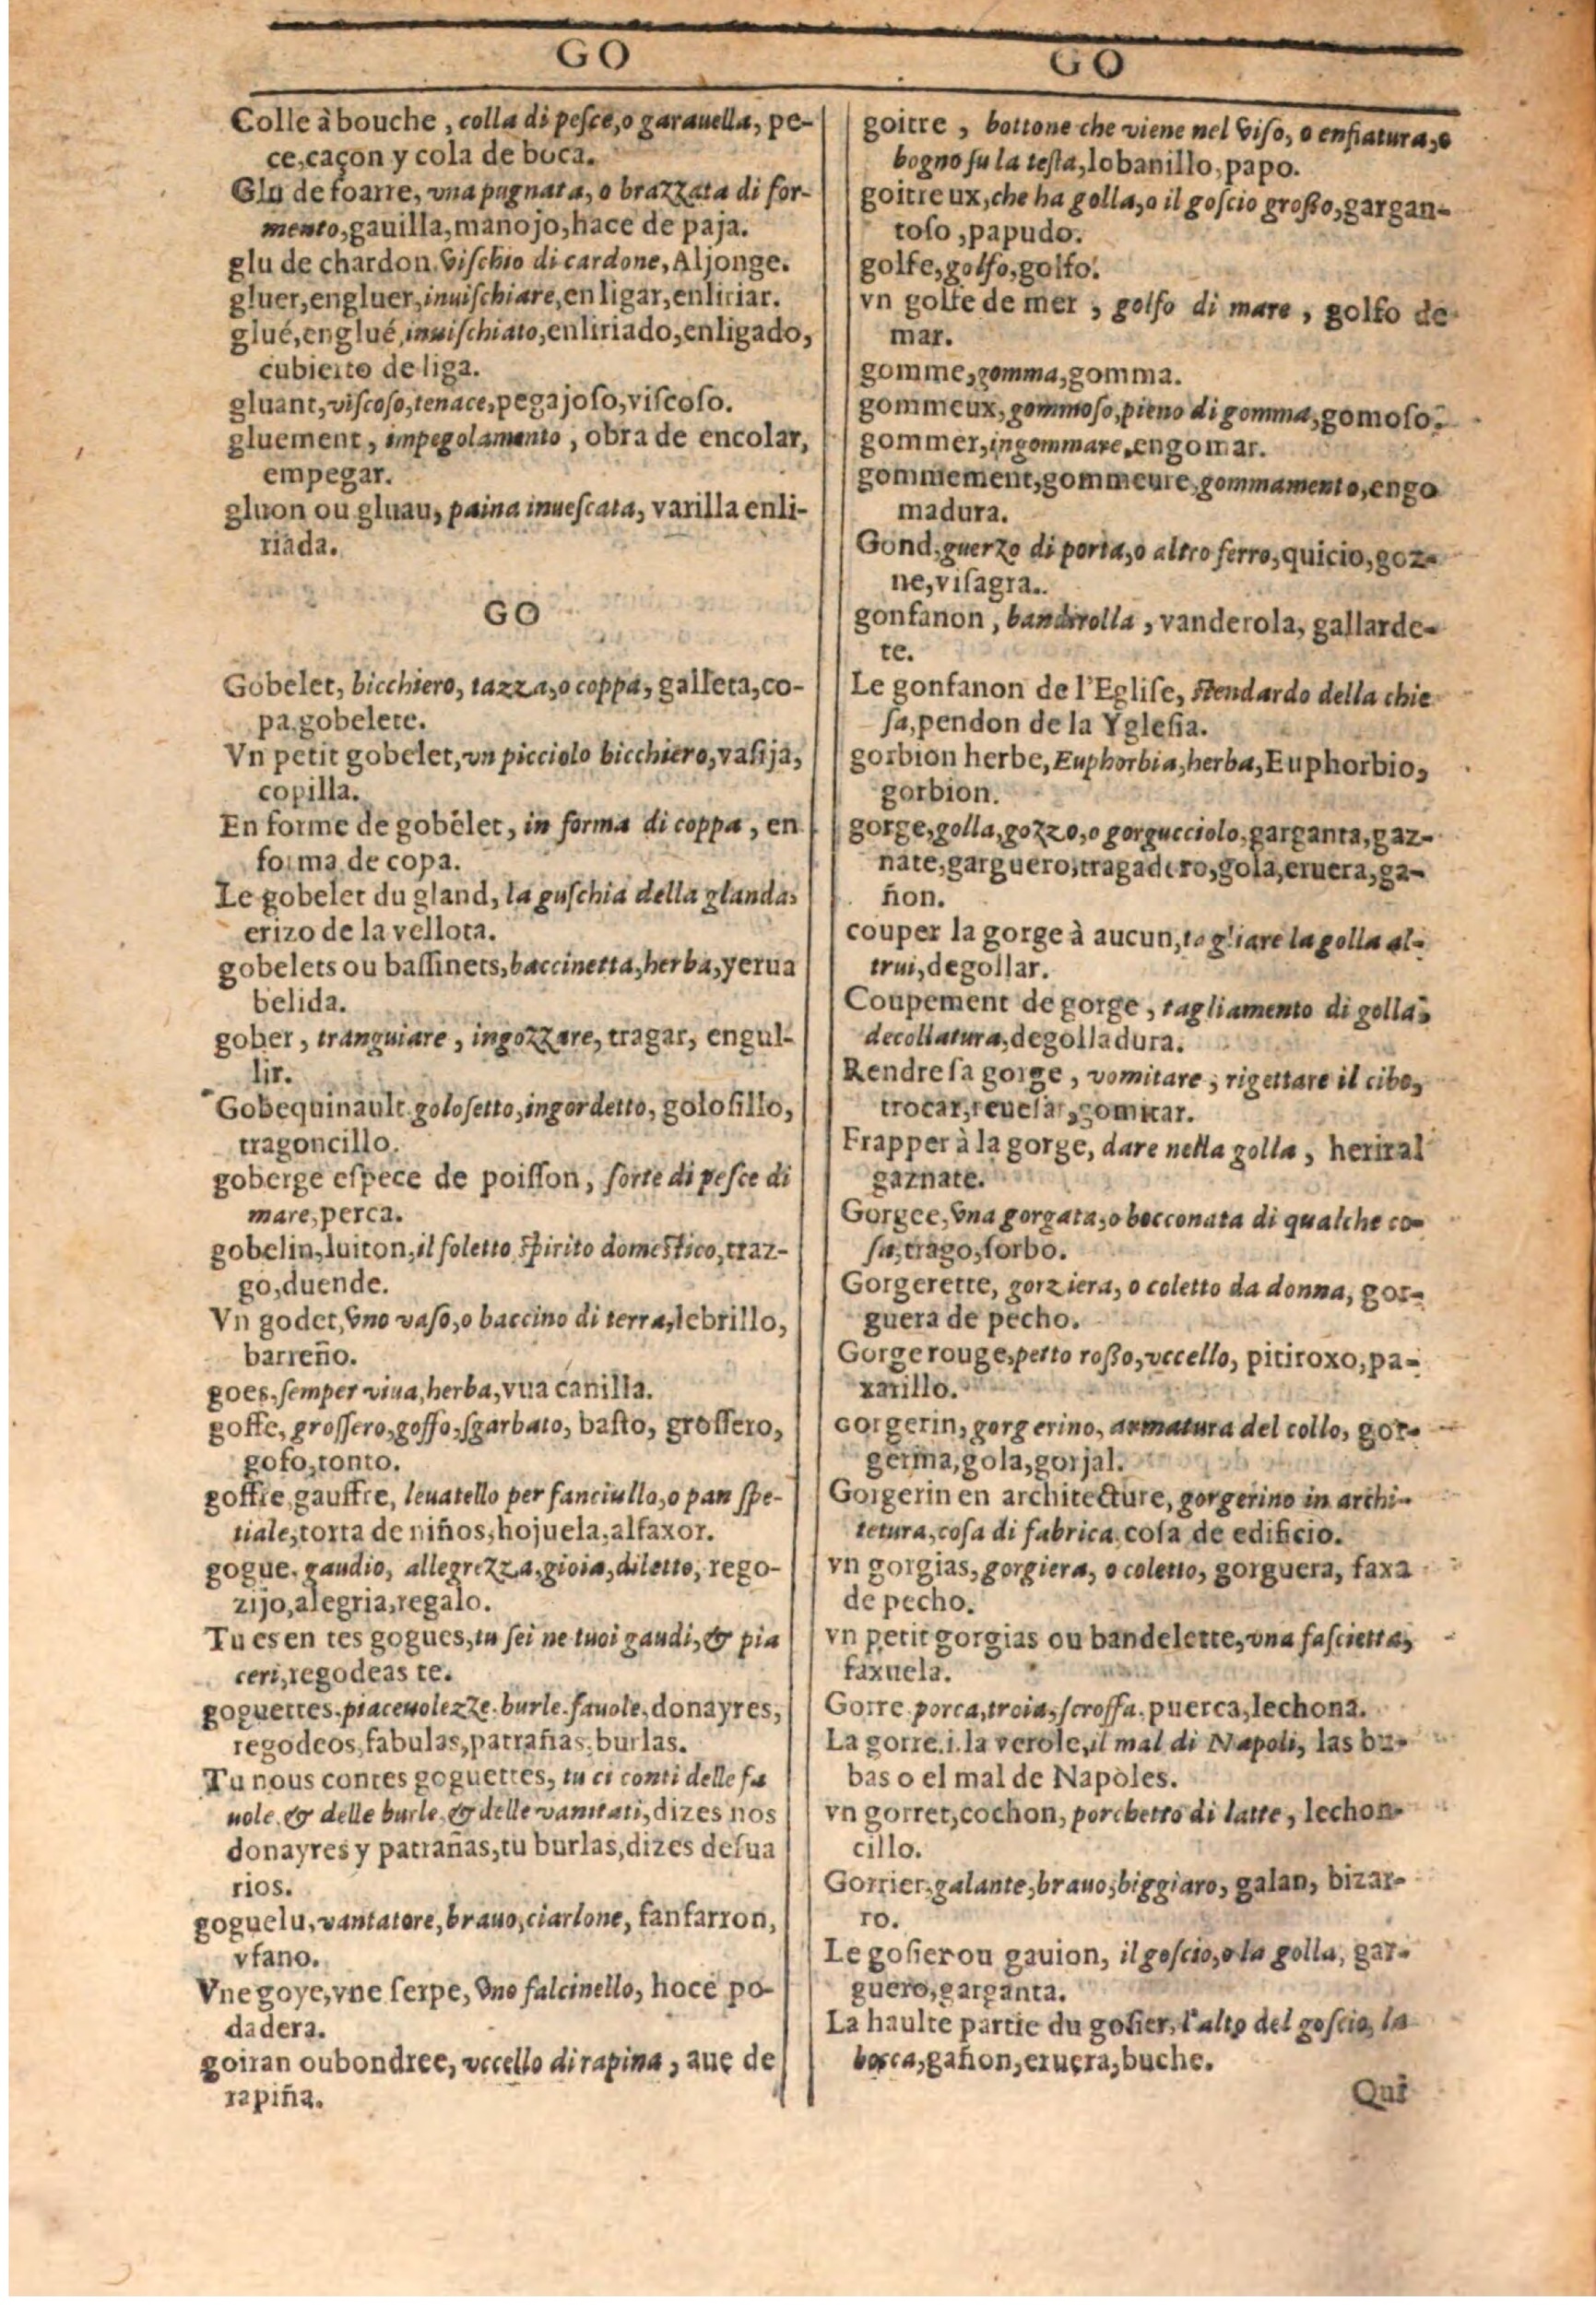 GO
GO
Colle à bouche, colla di pesce, o garauella, pe-
ce, caçon y cola de boca.
Glu de foarre, vna pugnata, o brazzata di for-
mento, gauilla, manojo, hace de paja.
glu de chardon, vischio di cardone, Aljonge.
gluer, engluer, inuischiare, enligar, enliriar.
glué, englué, inuischiato, enliriado, enligado,
cubierto de liga.
gluant, viscoso, tenace, pegajoso, viscoso.
gluement, impegolamento, obra de encolar,
empegar.
gluon ou gluau, paina inuescata, varilla enli-
riada.
GO
Gobelet, bicchiero, tazza, o coppa, galleta, co-
pa, gobelete.
Vn petit gobelet, vn picciolo bicchiero, vasija,
copilla.
En forme de gobelet, in forma di coppa, en
forma de copa.
Le gobelet du gland, la guschia della glanda,
erizo de la vellota.
gobelets ou bassinets, baccinetta, herba, yerua
belida.
gober, tranguiare, ingozzare, tragar, engul-
lir.
Gobequinault golosetto, ingordetto, golosillo,
tragoncillo.
goberge espece de poisson, sorte di pesce di
mare, perca.
gobelin, luiton, il foletto spirito domestico, traz-
go, duende.
Vn godet, vno vaso, o baccino di terra, lebrillo,
barreño.
goes, semper viua, herba, vua canilla.
goffe, grossero, goffo, sgarbato, basto, grossero,
gofo, tonto.
goffre, gauffre, leuatello per fanciullo, o pan spe-
tiale, torta de niños, hojuela, alfaxor.
gogue, gaudio, allegrezza, gioia, diletto, rego-
zijo, alegria, regalo.
Tu es en tes gogues, tu sei ne tuoi gaudi, & pia
ceri, regodeas te.
goguettes, piaceuolezze, burle, fauole, donayres,
regodeos, fabulas, patrañas, burlas.
Tu nous contes goguettes, tu ci conti delle fa
uole, & delle burle, & delle vanitati, dizes nos
donayres y patrañas, tu burlas, dizes desua
rios.
goguelu, vantatore, brauo, ciarlone, fanfarron,
vfano.
Vne goye, vne serpe, vno falcinello, hoce po-
dadera.
goiran ou bondree, vccello di rapina, aue de
rapiña.
goitre, bottone che viene nel viso, o enfiatura, o
bogno su la testa, lobanillo, papo.
goitreux, che ha golla, o il goscio grosso, gargan-
toso, papudo.
golfe, golfo, golfo.
vn golfe de mer, golfo di mare, golfo de
mar.
gomme, gomma, gomma.
gommeux, gommoso, pieno di gomma, gomoso.
gommer, ingommare, engomar.
gommement, gommeure, gommamento, engo
madura.
Gond, guerzo di porta, o altro ferro, quicio, goz-
ne, visagra.
gonfanon, bandirolla, vanderola, gallarde-
te.
Le gonfanon de l'Eglise, stendardo della chie
sa, pendon de la Yglesia.
gorbion herbe, Euphorbia, herba, Euphorbio,
gorbion.
gorge, golla, gozzo, o gorgucciolo, garganta, gaz-
nate, garguero, tragadero, gola, eruera, ga-
ñon.
couper la gorge à aucun, tagliare la golla al-
trui, degollar.
Coupement de gorge, tagliamento di golla,
decollatura, degolladura.
Rendre sa gorge, vomitare, rigettare il cibo,
trocar, reuesar, gomitar.
Frapper à la gorge, dare nella golla, herir al
gaznate.
Gorgee, vna gorgata, o bocconata di qualche co-
sa, trago, sorbo.
Gorgerette, gorziera, o coletto da donna, gor-
guera de pecho.
Gorge rouge, petto rosso, vccello, pitiroxo, pa-
xarillo.
Gorgerin, gorgerino, armatura del collo, gor-
gerina, gola, gorjal.
Gorgerin en architecture, gorgerino in archi-
tetura, cosa di fabrica, cosa de edificio.
vn gorgias, gorgiera, o coletto, gorguera, faxa
de pecho.
vn petit gorgias ou bandelette, vna fascietta,
faxuela.
Gorre porca, troia, scroffa, puerca, lechona.
La gorre. i. la verole, il mal di Napoli, las bu-
bas o el mal de Napoles.
vn gorret, cochon, porchetto di latte, lechon-
cillo.
Gorrier, galante, brauo, biggiaro, galan, bizar-
ro.
Le gosier ou gauion, il goscio, o la golla, gar-
guero, garganta.
La haulte partie du gosier, l'alto del goscio, la
bocca, gañon, eruera, buche.
Qui